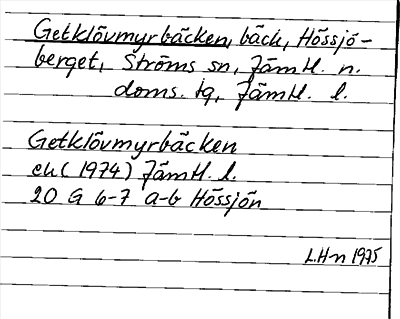 Getklövmyrbäcken, bäck, Hössjö-
berget, Ströms sn, Jämtl. n.
doms. tg, Jämtl. l.
Getklövmyrbäcken
ek (1974) Jämtl. l.
20 G 6-7 a-b Hössjön
L.H-n 1975